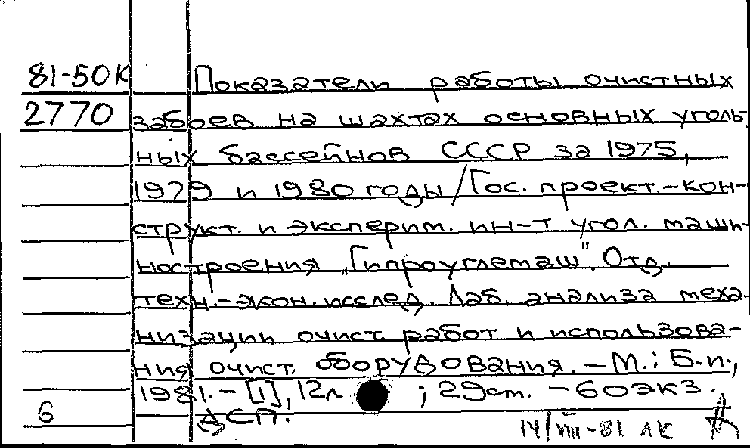 81-50К Показатели работы очистных
2770 забоев на шахтах основных уголь-
ных бассейнов СССР за 1975,
1979 и 1980 годы / Гос. проект.-кон-
структ. и эксперим. ин-т угол. маши-
ностроения „Гипроуглемаш". Отд.
техн.-экон. исслед. Лаб. анализа меха-
низации очист. работ и использова-
ния очист. оборудования. - М.: Б.и.,
1981. - [1], 12л ; 29см. - 60экз.
6 ДСП.
14/VIII-81 ЛК